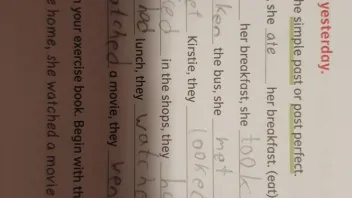 yesterday.
he simple past or past perfect.
, she ate her breakfast. (eat)
her breakfast, she took
ken the bus, she met
et Kirstie, they looked
ied in the shops, they
had lunch, they watche
atched a movie, they wen
n your exercise book. Begin with th
e home, she watched a movie